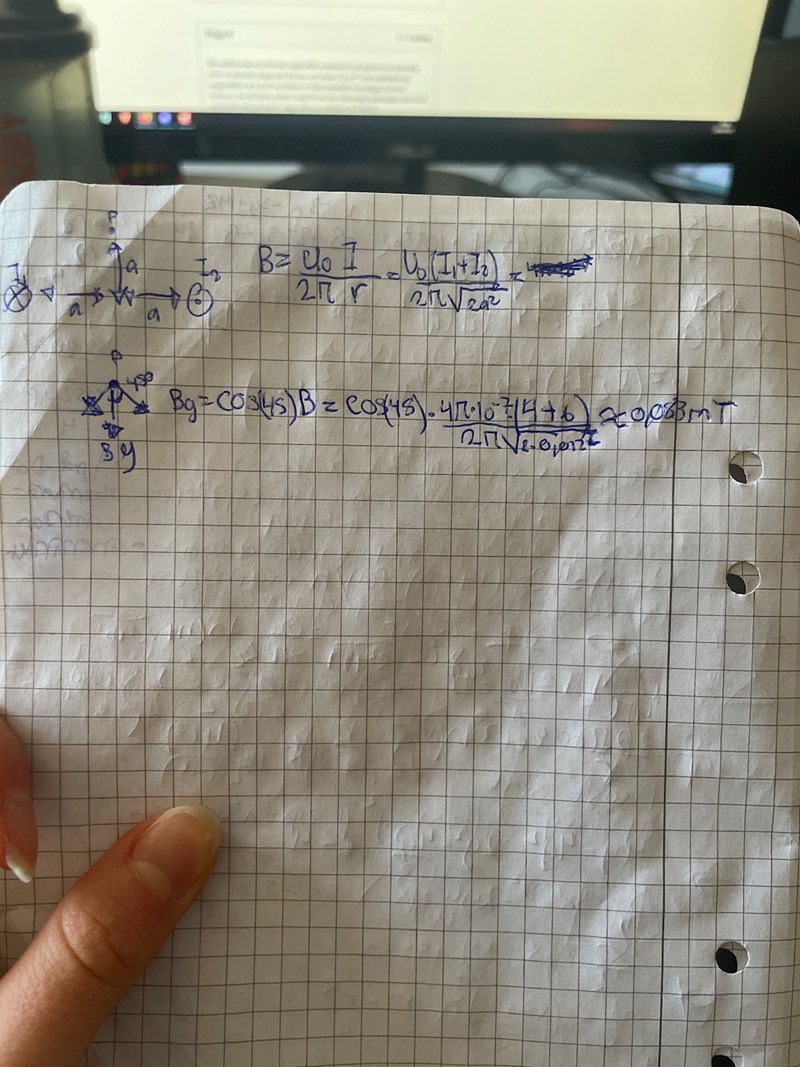 P
a
I₁
I₂
a
a
B = U₀ I / 2π r = U₀(I₁+I₂) / 2π√2a² =
P
45°
By = cos(45)B = cos(45) · 4π·10⁻⁷(4+6) / 2π√2·0,012² ≈ 0,083mT
By